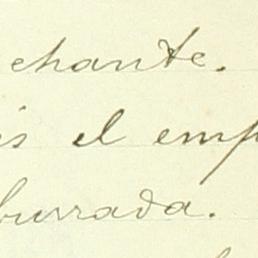 chante.
és el emp
burrada.